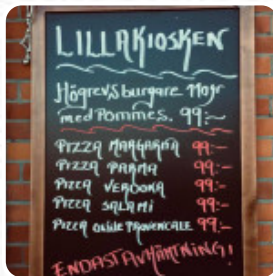 LILLAKIOSKEN
Högrevsburgare
med Pommes. 99:-
PIZZA MARGARITA 99:-
PIZZA PARMA 99:-
PIZZA 99:-
PIZZA SALAMI 99:-
PIZZA PROVENCALE 99:-
ENDAST AVHÄMTNING!